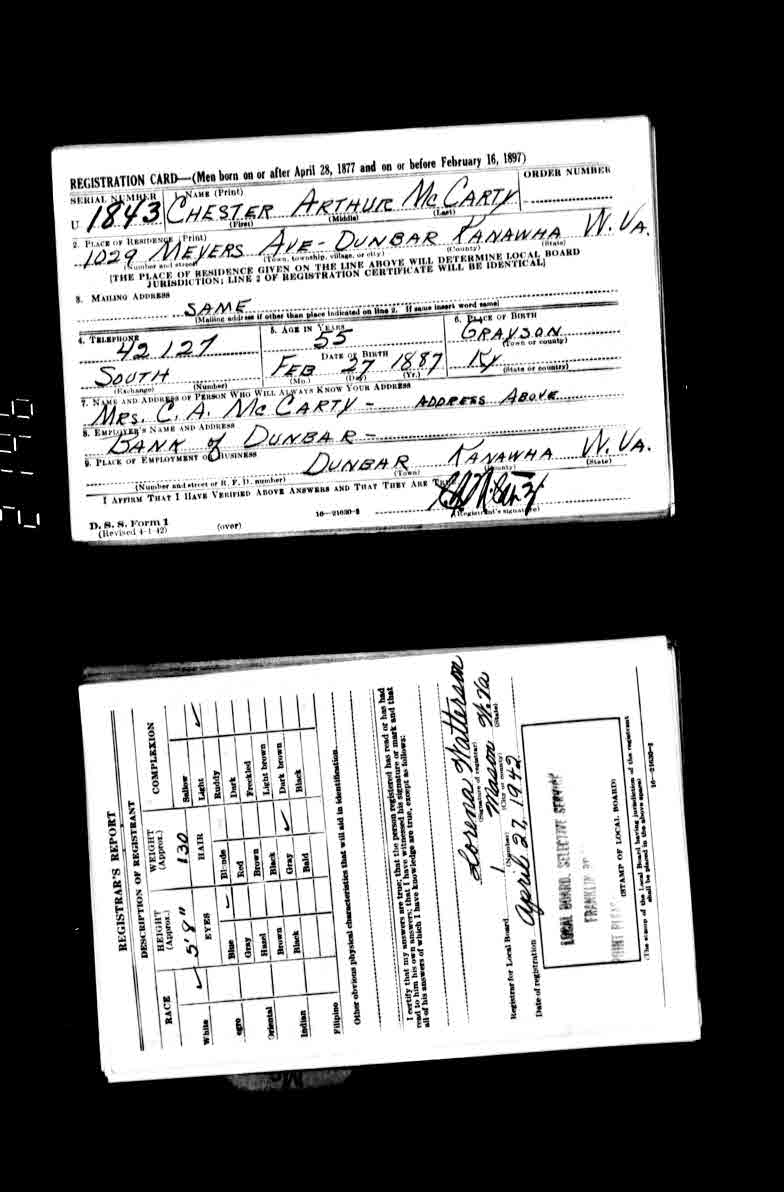 REGISTRATION CARD—(Men born on or after April 28, 1877 and on or before February 16, 1897)
SERIAL NUMBER 1. NAME (Print) ORDER NUMBER
U 1843 CHESTER ARTHUR McCARTY
(First) (Middle) (Last)
2. PLACE OF RESIDENCE (Print)
1029 MEYERS AVE - DUNBAR KANAWHA W. VA.
(Number and street) (Town, township, village, or city) (County) (State)
[THE PLACE OF RESIDENCE GIVEN ON THE LINE ABOVE WILL DETERMINE LOCAL BOARD
JURISDICTION; LINE 2 OF REGISTRATION CERTIFICATE WILL BE IDENTICAL]
3. MAILING ADDRESS
SAME
[Mailing address if other than place indicated on line 2. If same insert word same]
4. TELEPHONE 5. AGE IN YEARS 6. PLACE OF BIRTH
42127 55 GRAYSON
DATE OF BIRTH (Town or county)
SOUTH FEB 27 1887 KY
(Exchange) (Number) (Mo.) (Day) (Yr.) (State or country)
7. NAME AND ADDRESS OF PERSON WHO WILL ALWAYS KNOW YOUR ADDRESS
MRS. C. A. McCARTY - ADDRESS ABOVE
8. EMPLOYER'S NAME AND ADDRESS
BANK of DUNBAR -
9. PLACE OF EMPLOYMENT OR BUSINESS
DUNBAR KANAWHA W. VA.
(Number and street or R. F. D. number) (Town) (County) (State)
I AFFIRM THAT I HAVE VERIFIED ABOVE ANSWERS AND THAT THEY ARE TRUE.
D. S. S. Form 1
(Revised 4-1-42) (over) 16—21630-2 (Registrant's signature)
REGISTRAR'S REPORT
DESCRIPTION OF REGISTRANT
RACE HEIGHT (Approx.) WEIGHT (Approx.) COMPLEXION
5' 8" 130 Sallow
White ✓ EYES HAIR Light ✓
Blue ✓ Blonde Ruddy
egro Gray Red Dark
Oriental Hazel Brown Freckled
Brown Black Light brown
Indian Black Gray ✓ Dark brown
Bald Black
Filipino
Other obvious physical characteristics that will aid in identification
I certify that my answers are true; that the person registered has read or has had
read to him his own answers; that I have witnessed his signature or mark and that
all of his answers of which I have knowledge are true, except as follows:
Lorena Watterson
(Signature of registrar)
Registrar for Local Board 1 Mason W. Va
(Number) (City or county) (State)
Date of registration April 27, 1942
LOCAL BOARD, SELECTIVE SERVICE
FRANKLIN
POINT
(STAMP OF LOCAL BOARD)
(The stamp of the Local Board having jurisdiction of the registrant
shall be placed in the above space)
16—21630-2